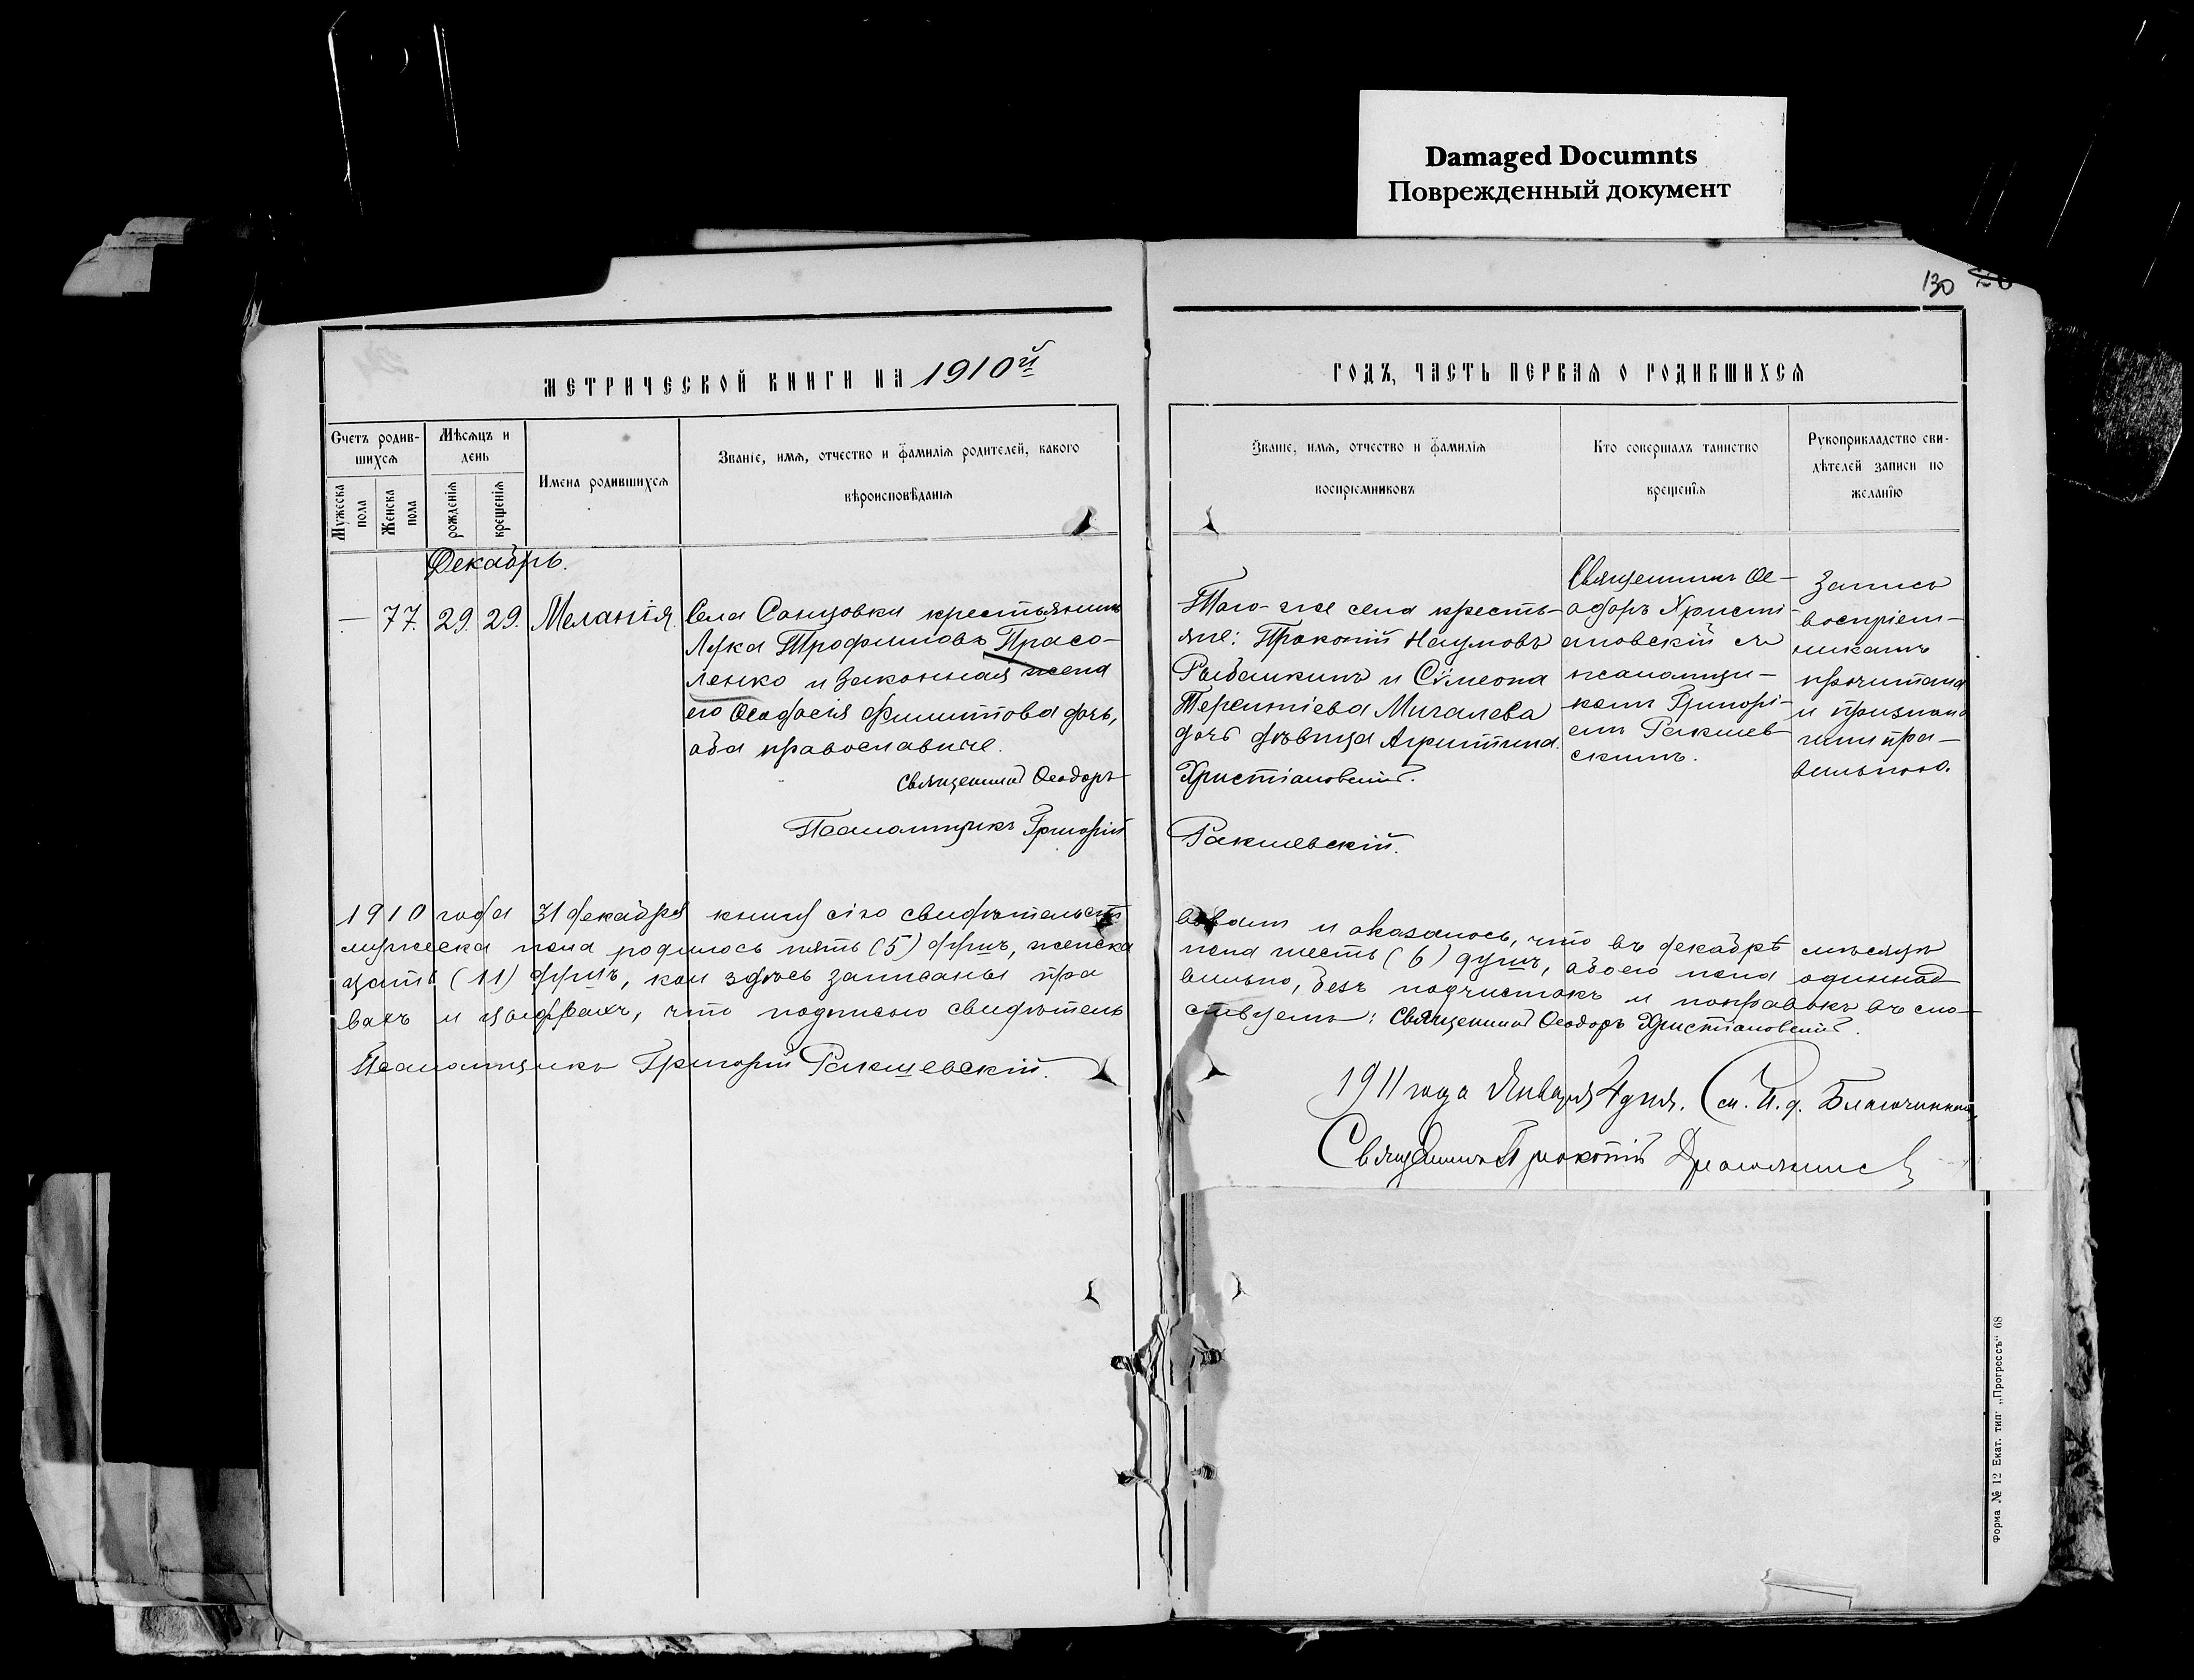 Damaged Documnts
Поврежденный документ
130
МЕТРИЧЕСКОЙ КНИГИ НА 1910й
ГОДЪ, ЧАСТЬ ПЕРВАЯ О РОДИВШИХСЯ
Счетъ родив-
шихся
Мужеска
пола
Женска
пола
Мѣсяцъ и
день
рожденія
крещенія
Имена родившихся
Званіе, имя, отчество и фамилія родителей, какого
вѣроисповѣданія
Званіе, имя, отчество и фамилія
воспріемниковъ
Кто совершалъ таинство
крещенія
Рукоприкладство сви-
дѣтелей записи по
желанію
Декабрь.
— 77. 29. 29. Меланія.
Села Сонцовки крестьянинъ
Лука Трофимовъ Прасо-
ленко и законная жена
его Ѳеодосія Филиппова дочь,
оба православные.
Священникъ Ѳеодоръ
Псаломщикъ Григорій
Того-же села кресть-
яне: Прокопій Наумовъ
Рыбалкинъ и Сѵмеона
Терентіева Мигалева
дочь дѣвица Агриппина.
Христіановскій.
Ракшевскій.
Священникъ Ѳе-
одоръ Христі-
ановскій съ
псаломщи-
комъ Григорі-
емъ Ракшев-
скимъ.
Запись
воспріем-
никамъ
прочитана
и признана
ими пра-
вильною.
1910 года 31 декабря книгу сію свидѣтельст
вовали и оказалось, что въ декабрѣ мѣсяцѣ
мужеска пола родилось пять (5) душъ, женска
пола шесть (6) душъ, обоего пола одиннад
цать (11) душъ, кои здѣсь записаны пра
вильно, безъ подчистокъ и поправокъ въ сло-
вахъ и цыфрахъ, что подписью свидѣтель
ствуемъ: Священникъ Ѳеодоръ Христіановскій.
Псаломщикъ Григорій Ракшевскій.
1911 года Января 4 дня. См. И. д. Благочиннаго
Священникъ Прокопій
Форма № 12 Екат. тип. „Прогрессъ" 68